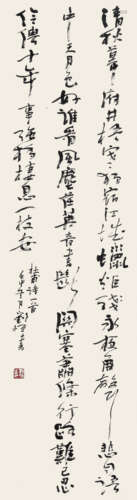 清秋幕府井梧寒獨宿江城蠟炬殘永夜角聲悲自語
中天月色好誰看風塵荏苒音書斷關塞蕭條行路難已忍
伶俜十年事強移棲息一枝安
杜甫詩一首